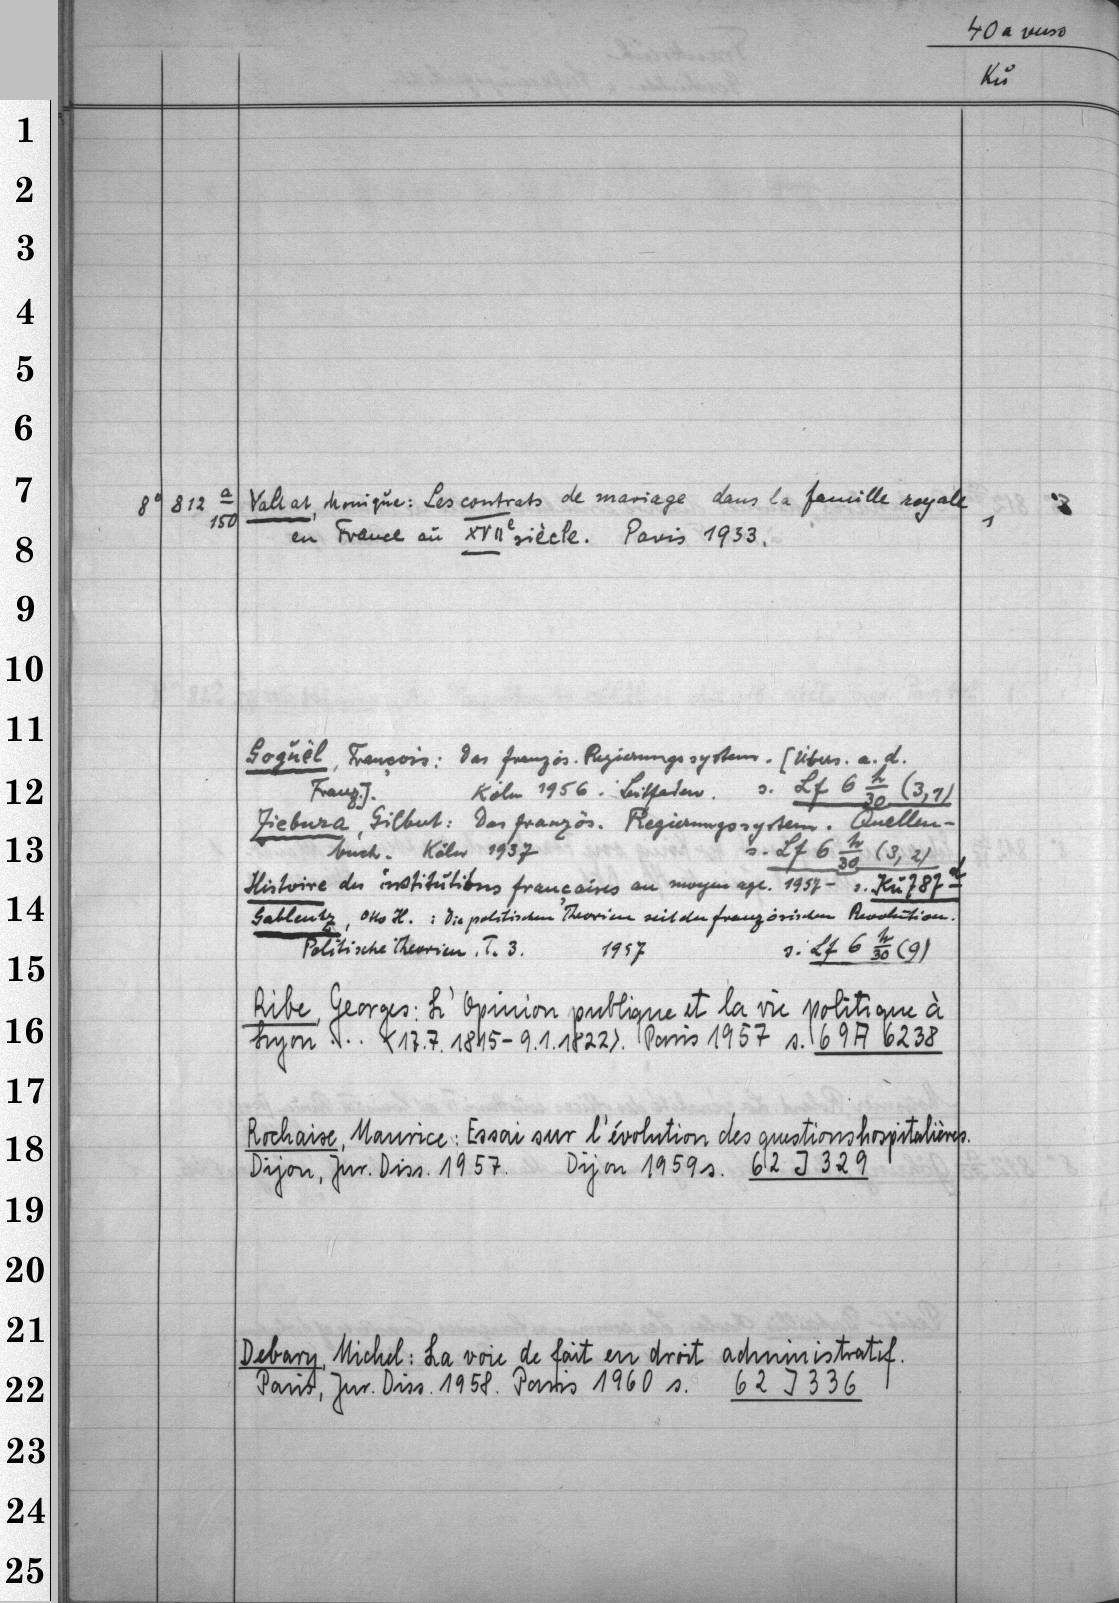 40 a verso
Kü
1
2
3
4
5
6
7
8
9
10
11
12
13
14
15
16
17
18
19
20
21
22
23
24
25
8° 812 a/150 Vallat, Monique: Les contrats de mariage dans la famille royale
en France au XVIIe siècle. Paris 1933. 1
Goguel, François: Das französ. Regierungssystem. [Übers. a. d.
Franz.]. Köln 1956. Leitfaden. s. Lf 6 h/30 (3,1)
Ziebura, Gilbert: Das französ. Regierungssystem. Quellen-
buch. Köln 1957 s. Lf 6 h/30 (3,2)
Histoire des institutions françaises au moyen age. 1957- s. Kü 787 d
Gablentz, Otto H.: Die politischen Theorien seit der französischen Revolution.
Politische Theorien. T. 3. 1957 s. Lf 6 h/30 (9)
Ribe, Georges: L'Opinion publique et la vie politique à
Lyon ... <17.7.1815-9.1.1822>. Paris 1957 s. 69 A 6238
Rochaise, Maurice: Essai sur l'évolution des questions hospitalières.
Dijon, Jur. Diss. 1957. Dijon 1959 s. 62 J 329
Debary, Michel: La voie de fait en droit administratif.
Paris, Jur. Diss. 1958. Paris 1960 s. 62 J 336